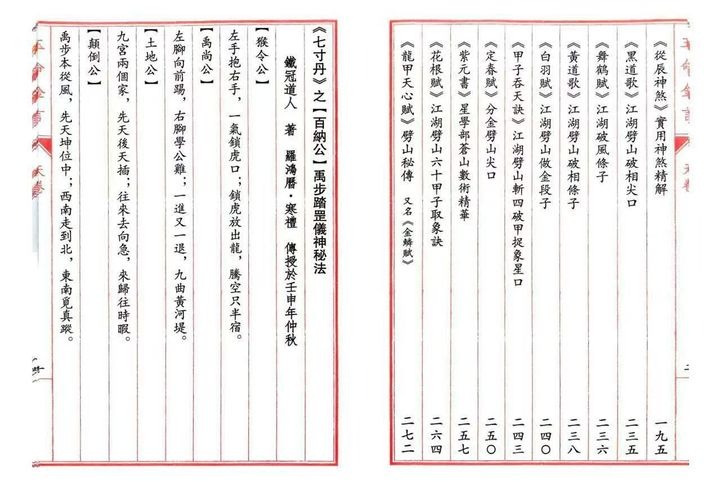 《從辰神煞》實用神煞精解 一九五
《黑道歌》江湖劈山破相尖口 二三五
《舞鶴賦》江湖破風條子 二三六
《黃道歌》江湖劈山破相條子 二三八
《白羽賦》江湖劈山做金段子 二四〇
《甲子吞天訣》江湖劈山斬四破甲捉象星口 二四三
《定春賦》分金劈山尖口 二五〇
《紫元書》星學部蒼山數術精華 二五七
《花根賦》江湖劈山六十甲子取象訣 二六四
《龍甲天心賦》劈山秘傳 又名《金蟒賦》 二七二
《七寸丹》之【百納公】禹步踏罡儀神秘法
鐵冠道人 著 羅鴻曆·寒禮 傳授於壬申年仲秋
【猴令公】
左手抱右手，一氣鎖虎口；鎖虎放出龍，騰空只半宿。
【禹尚公】
左腳向前踢，右腳學公雞；一進又一退，九曲黃河堤。
【土地公】
九宮兩個家，先天後天插；往來去向急，來歸往時暇。
【顛倒公】
禹步本從風，先天坤位中；西南走到北，東南覓真蹤。